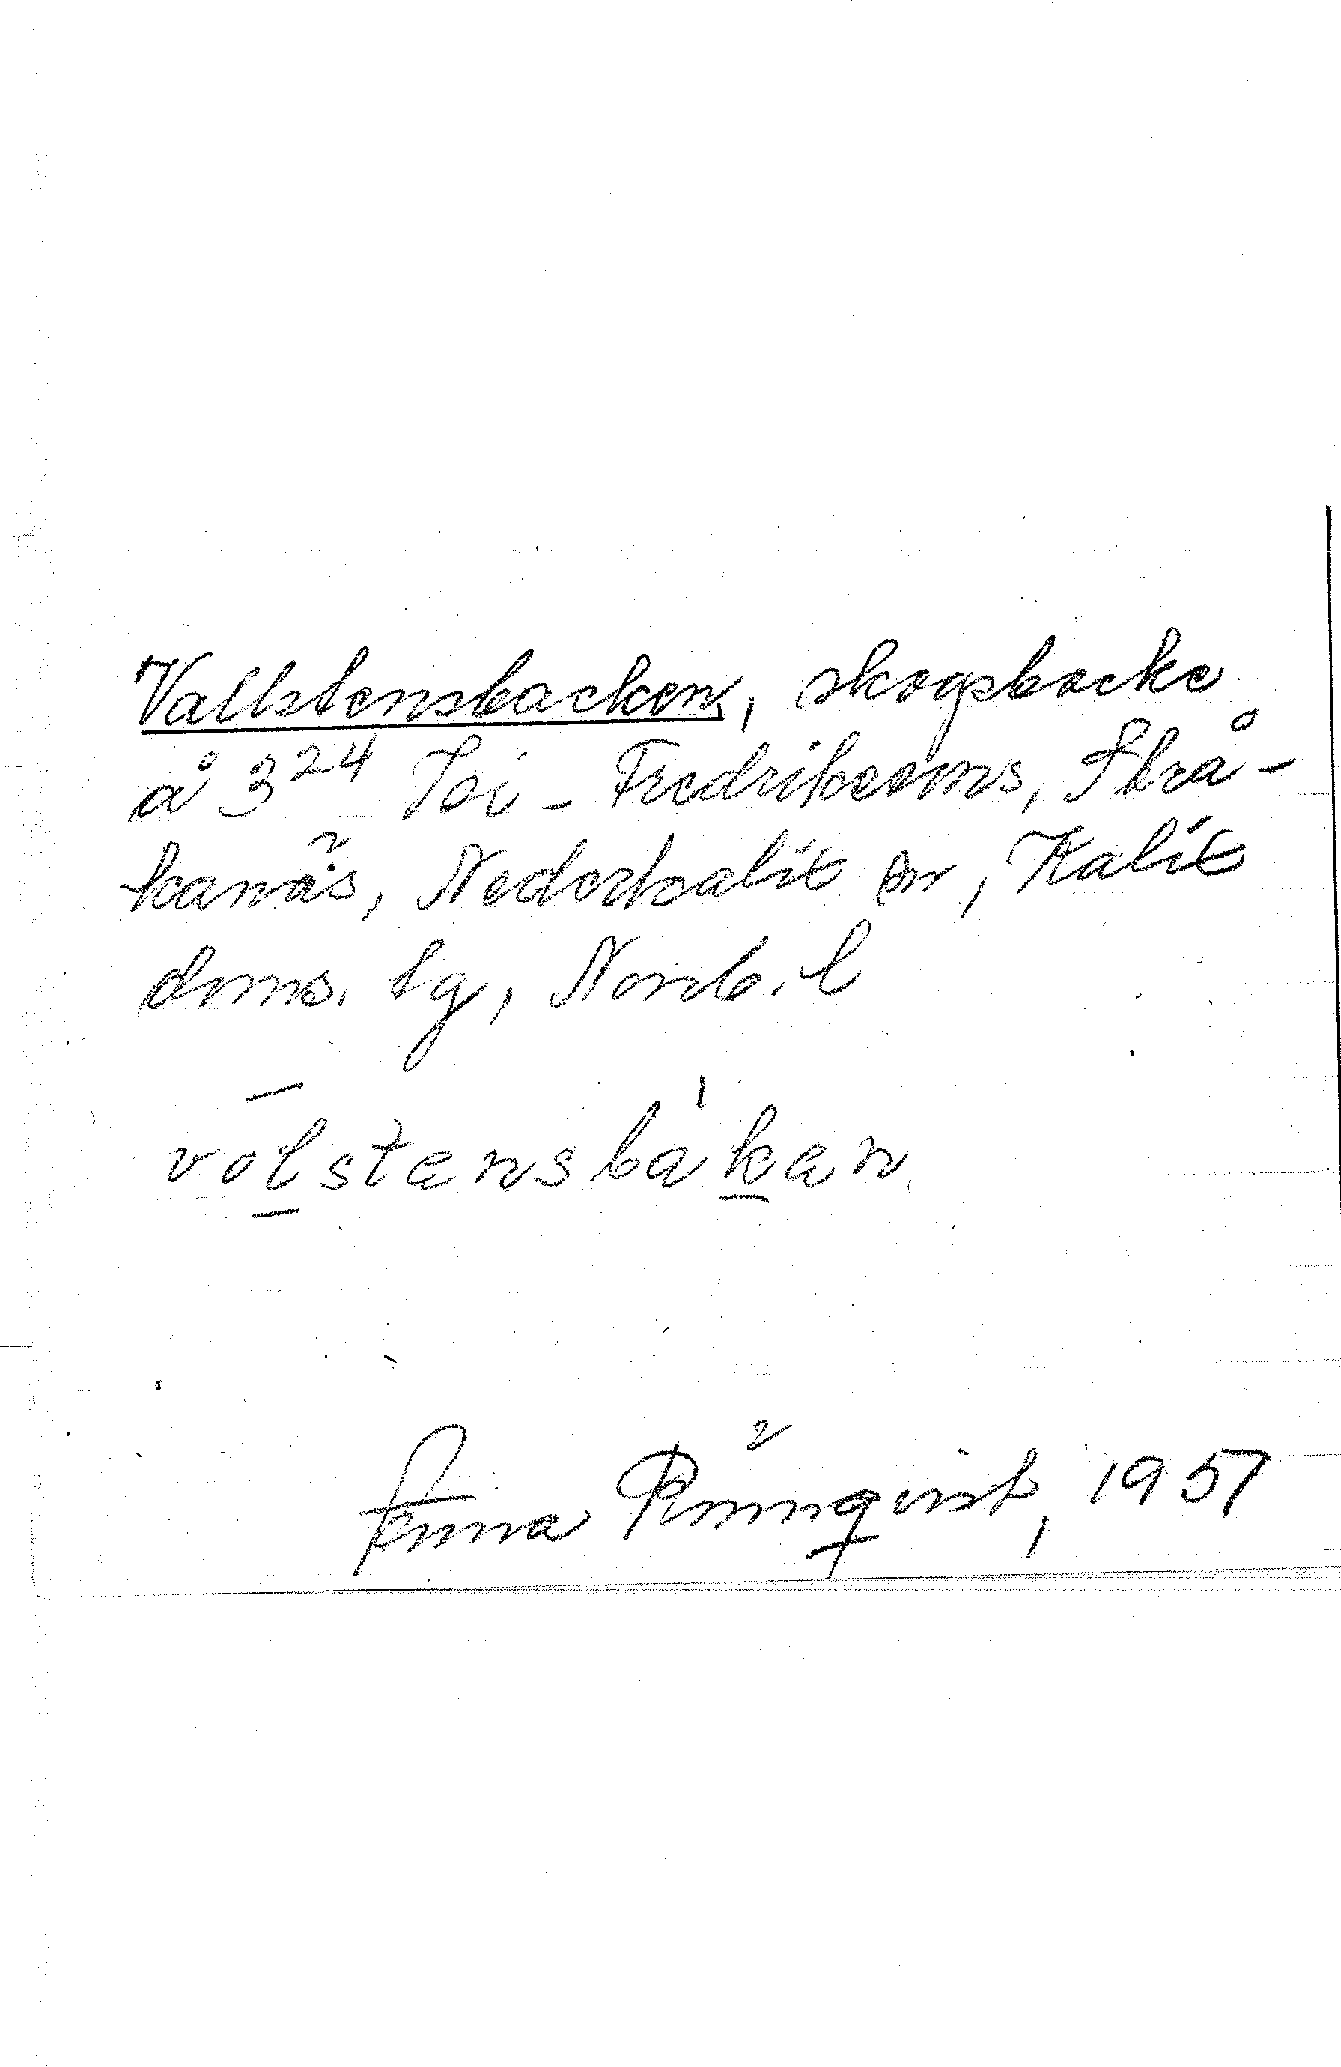 Vallstensbacken, skogsbacke
å 3²⁴ Toi-Fredrikssons, Strå-
kanäs, Nederkalix sn, Kalix
doms. tg, Norrb. l
volstensbakan
Anna Rönnqvist, 1951